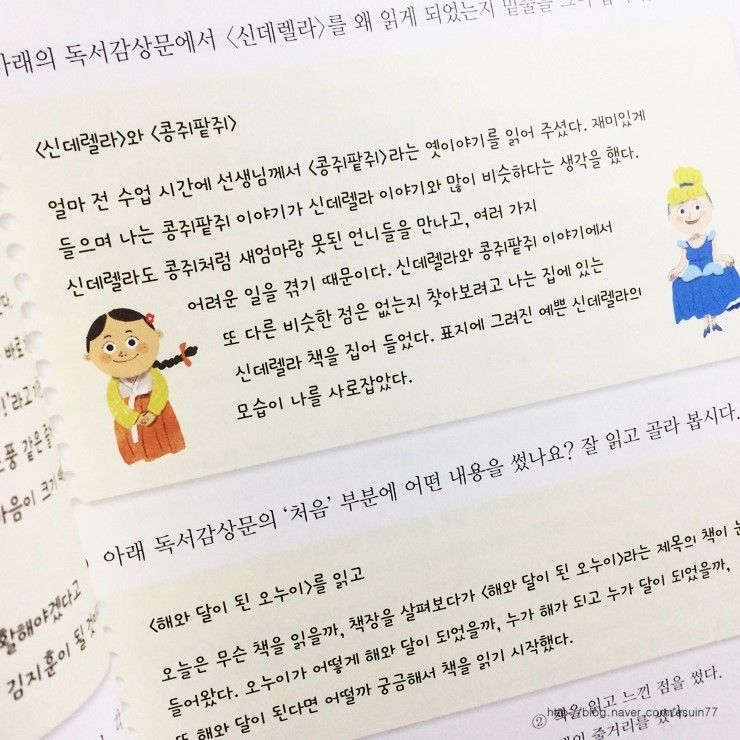 아래의 독서감상문에서 〈신데렐라〉를 왜 읽게 되었는지 밑줄을
〈신데렐라〉와 〈콩쥐팥쥐〉
얼마 전 수업 시간에 선생님께서 〈콩쥐팥쥐〉라는 옛이야기를 읽어 주셨다. 재미있게
들으며 나는 콩쥐팥쥐 이야기가 신데렐라 이야기와 많이 비슷하다는 생각을 했다.
신데렐라도 콩쥐처럼 새엄마랑 못된 언니들을 만나고, 여러 가지
어려운 일을 겪기 때문이다. 신데렐라와 콩쥐팥쥐 이야기에서
또 다른 비슷한 점은 없는지 찾아보려고 나는 집에 있는
신데렐라 책을 집어 들었다. 표지에 그려진 예쁜 신데렐라의
모습이 나를 사로잡았다.
아래 독서감상문의 '처음' 부분에 어떤 내용을 썼나요? 잘 읽고 골라 봅시다.
〈해와 달이 된 오누이〉를 읽고
오늘은 무슨 책을 읽을까, 책장을 살펴보다가 〈해와 달이 된 오누이〉라는 제목의 책이 눈
들어왔다. 오누이가 어떻게 해와 달이 되었을까, 누가 해가 되고 누가 달이 되었을까,
또 해와 달이 된다면 어떨까 궁금해서 책을 읽기 시작했다.
② 책을 읽고 느낀 점을 썼다.
줄거리를 썼다.
http://blog.naver.com/esuin77
다.
바로
라고
풍 같은
마음이
활해야겠다고
김지훈이 될